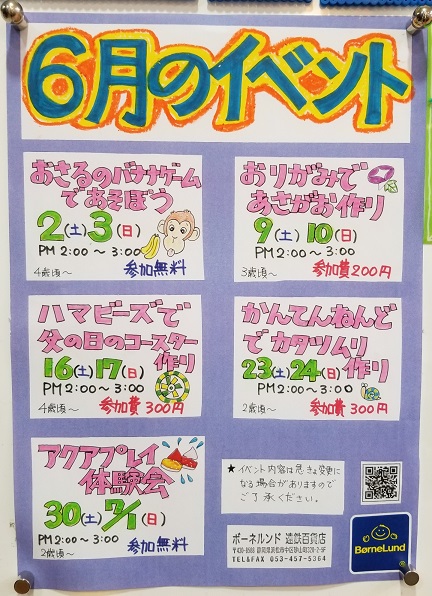 6月のイベント
おさるのバナナゲーム
であそぼう
2(土)3(日)
PM 2:00～3:00
4歳頃～ 参加無料
おりがみで
あさがお作り
9(土)10(日)
PM 2:00～3:00
3歳頃～ 参加費200円
ハマビーズで
父の日のコースター
作り
16(土)17(日)
PM2:00～3:00
4歳頃～ 参加費300円
かんてんねんど
でカタツムリ
作り
23(土)24(日)
PM2:00～3:00
2歳頃～ 参加費300円
アクアプレイ
体験会
30(土)7/1(日)
PM2:00～3:00
2歳頃～ 参加無料
★イベント内容は急きょ変更に
なる場合がありますので
ご了承ください。
ボーネルンド 遠鉄百貨店
TEL&FAX 053-457-5364
BørneLund